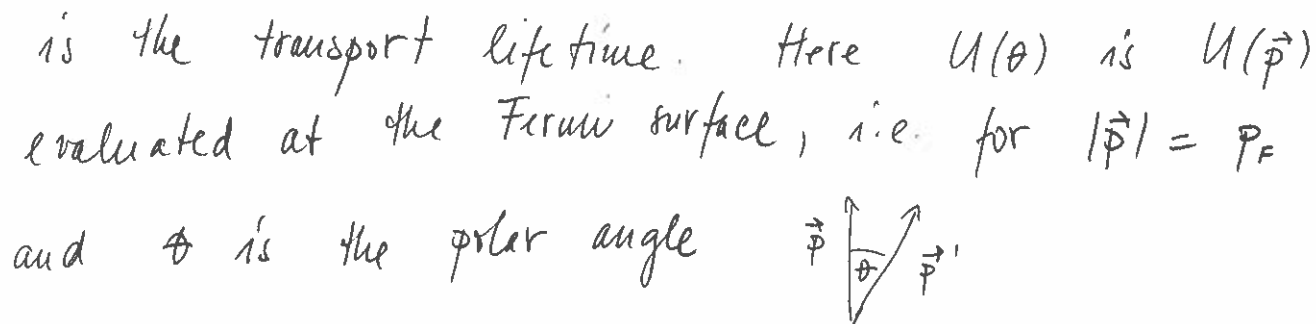 is the transport lifetime. Here U(θ) is U(p⃗)
evaluated at the Fermi surface, i.e. for |p⃗| = p_F
and θ is the polar angle p⃗ θ p⃗'